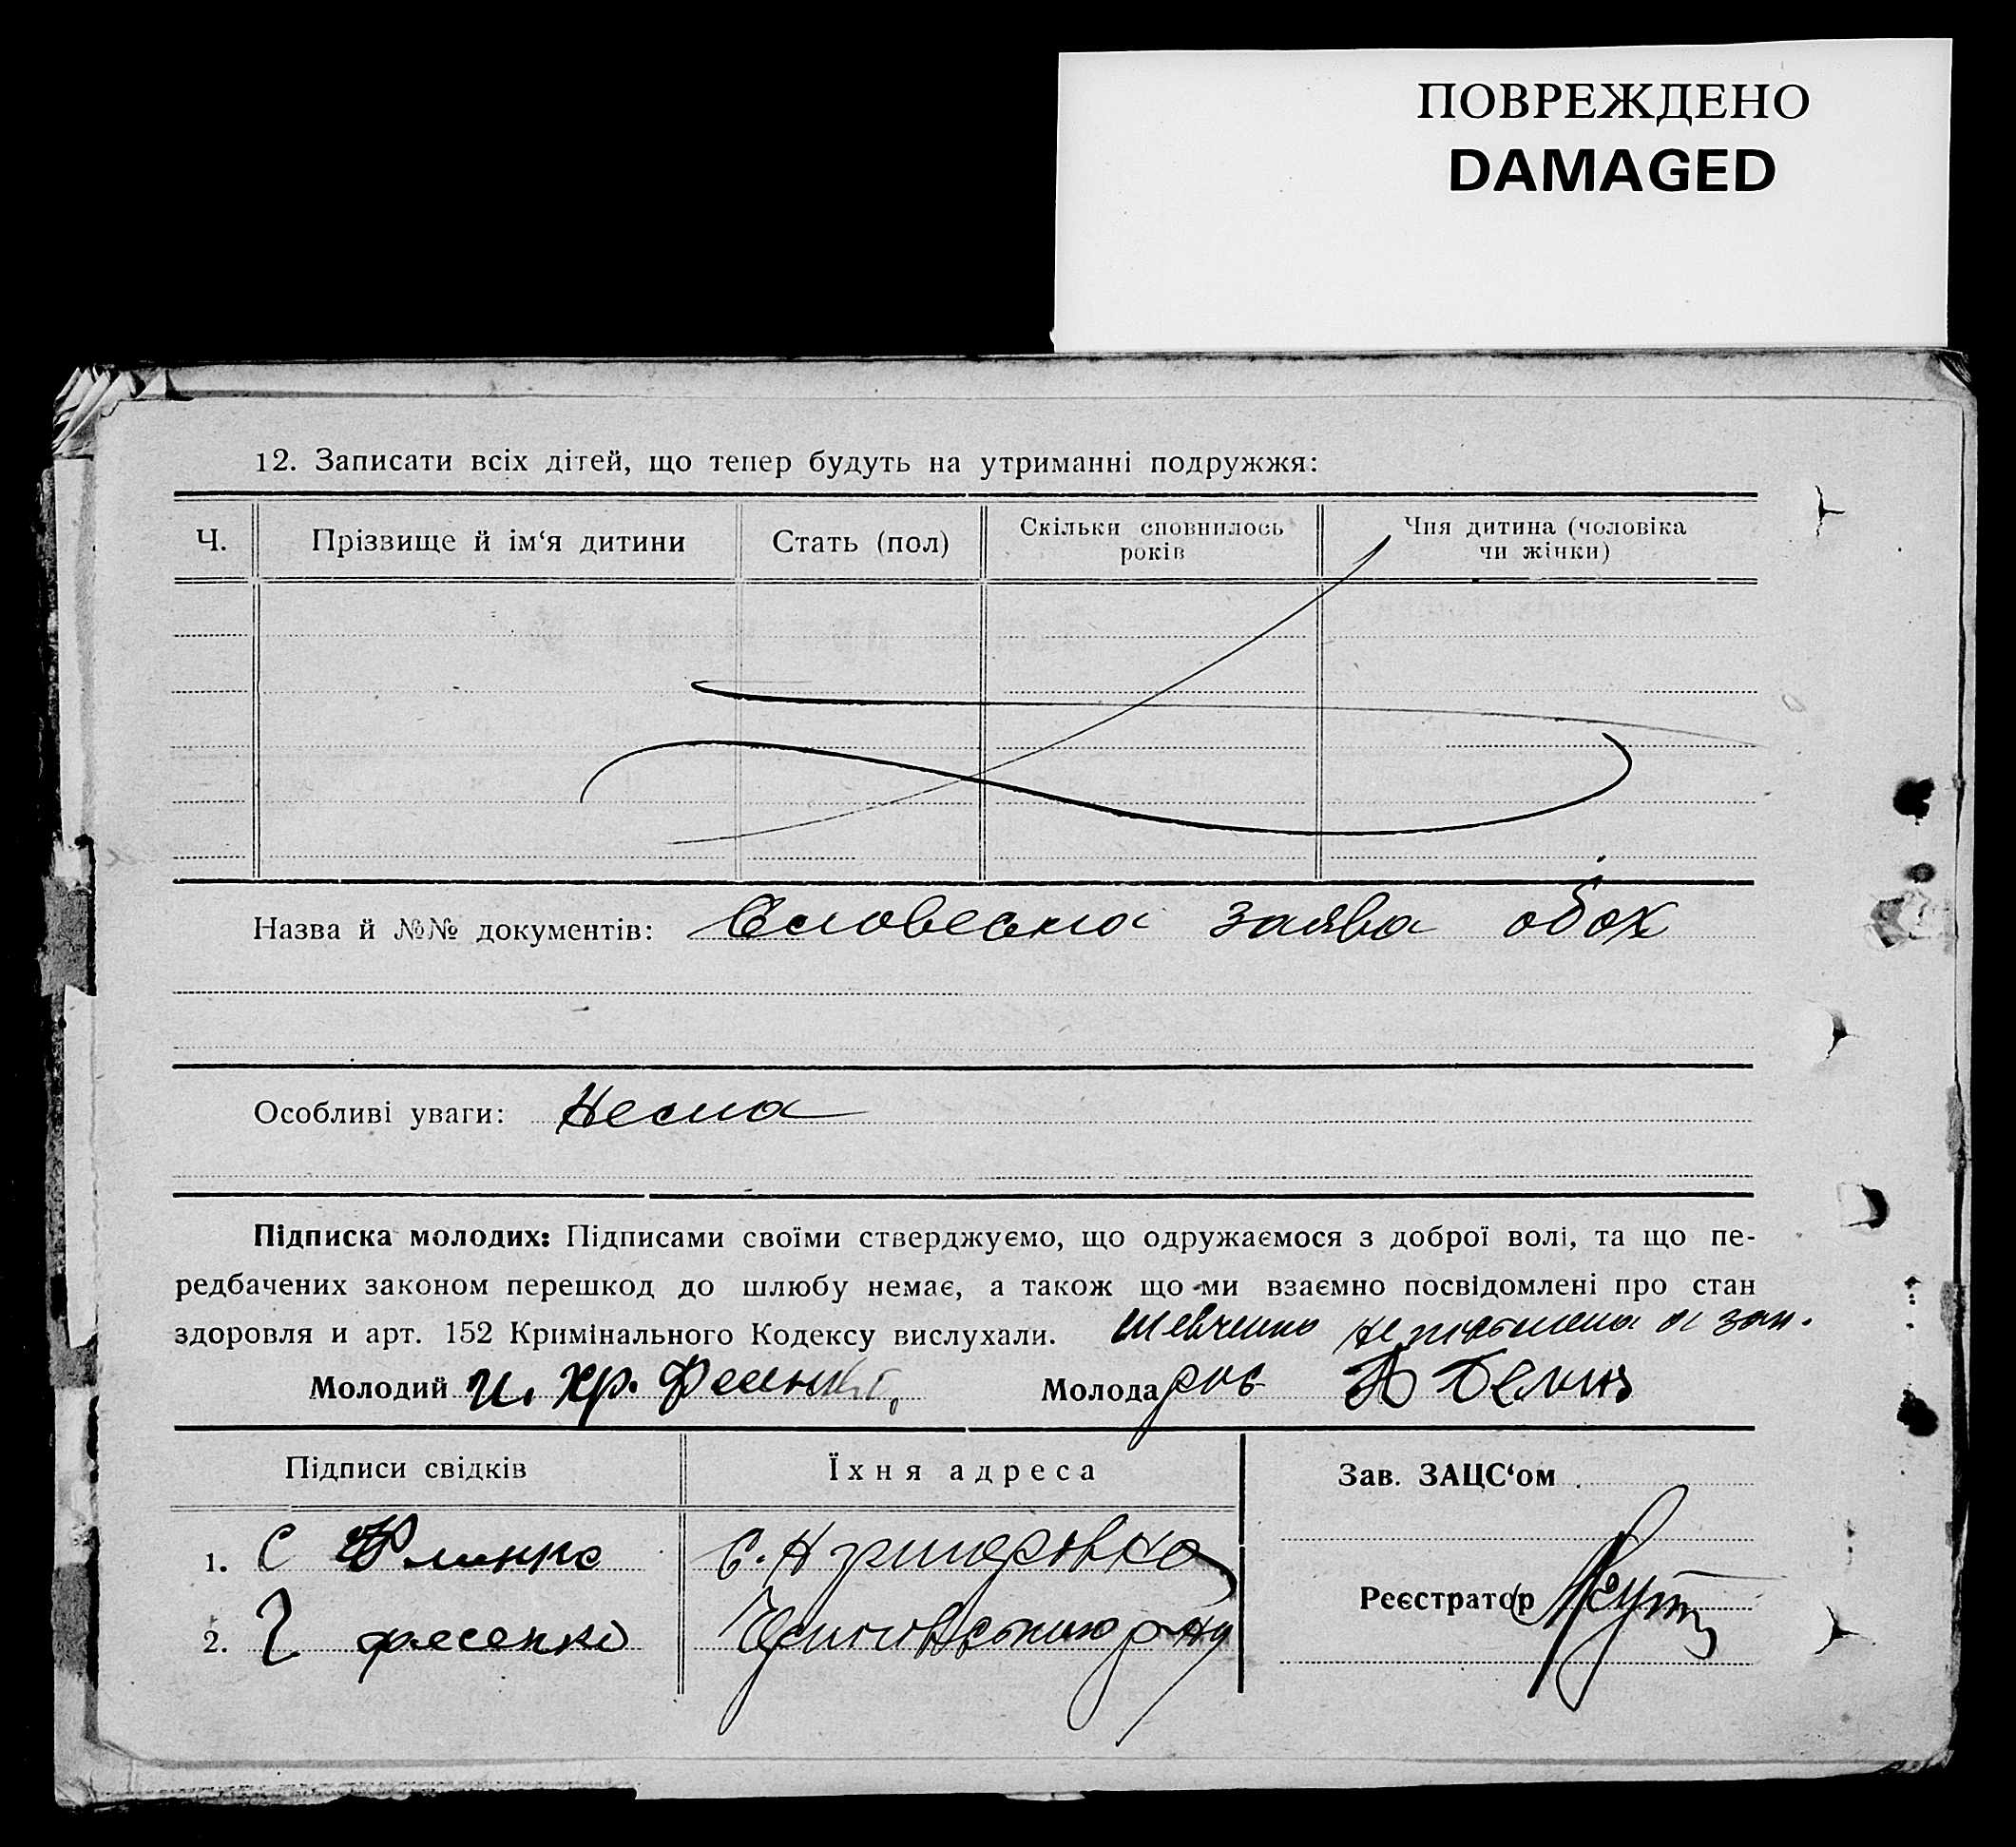 ПОВРЕЖДЕНО
DAMAGED
12. Записати всіх дітей, що тепер будуть на утриманні подружжя:
Ч. Прізвище й ім‘я дитини Стать (пол) Скільки сповнилось років Чия дитина (чоловіка чи жінки)
Назва й №№ документів: Словесна заява обох
Особливі уваги: Нема
Підписка молодих: Підписами своїми стверджуємо, що одружаємося з доброї волі, та що пе-
редбачених законом перешкод до шлюбу немає, а також що ми взаємно посвідомлені про стан
здоровля и арт. 152 Кримінального Кодексу вислухали. Шевченко неписьмена а за н.
Молодий И. Хр. Молода рос
Підписи свідків Їхня адреса Зав. ЗАЦС‘ом
1. С с.
Реєстратор
2.